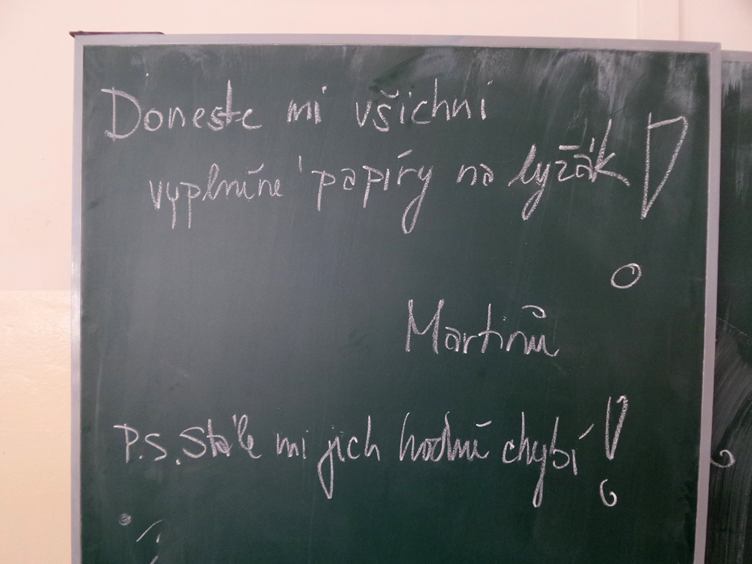 Doneste mi všichni
vyplněné papíry na lyžák!
Martinů
P.S. Stále mi jich hodně chybí!